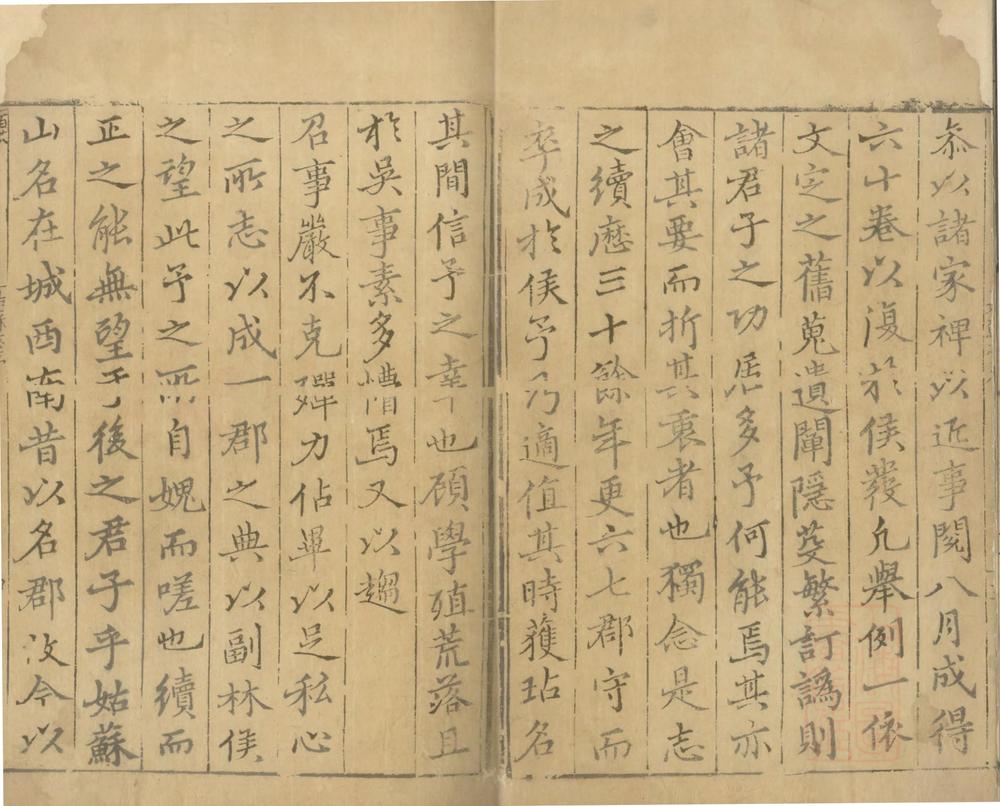 叅以諸家裨以近事閱八月成得
六十卷以復於侯發凡舉例一依
文定之舊蒐遺闡隱芟繁訂譌則
諸君子之功居多予何能焉其亦
會其要而折其衷者也獨念是志
之續歴三十餘年更六七郡守而
卒成於侯予乃適值其時獲玷名
其間信予之幸也顧學殖荒落且
於吳事素多懵焉又以趨
召事嚴不克殫力佔畢以足私心
之所志以成一郡之典以副林侯
之望此予之所自媿而嗟也續而
正之能無望于後之君子乎姑蘇
山名在城西南昔以名郡故今以